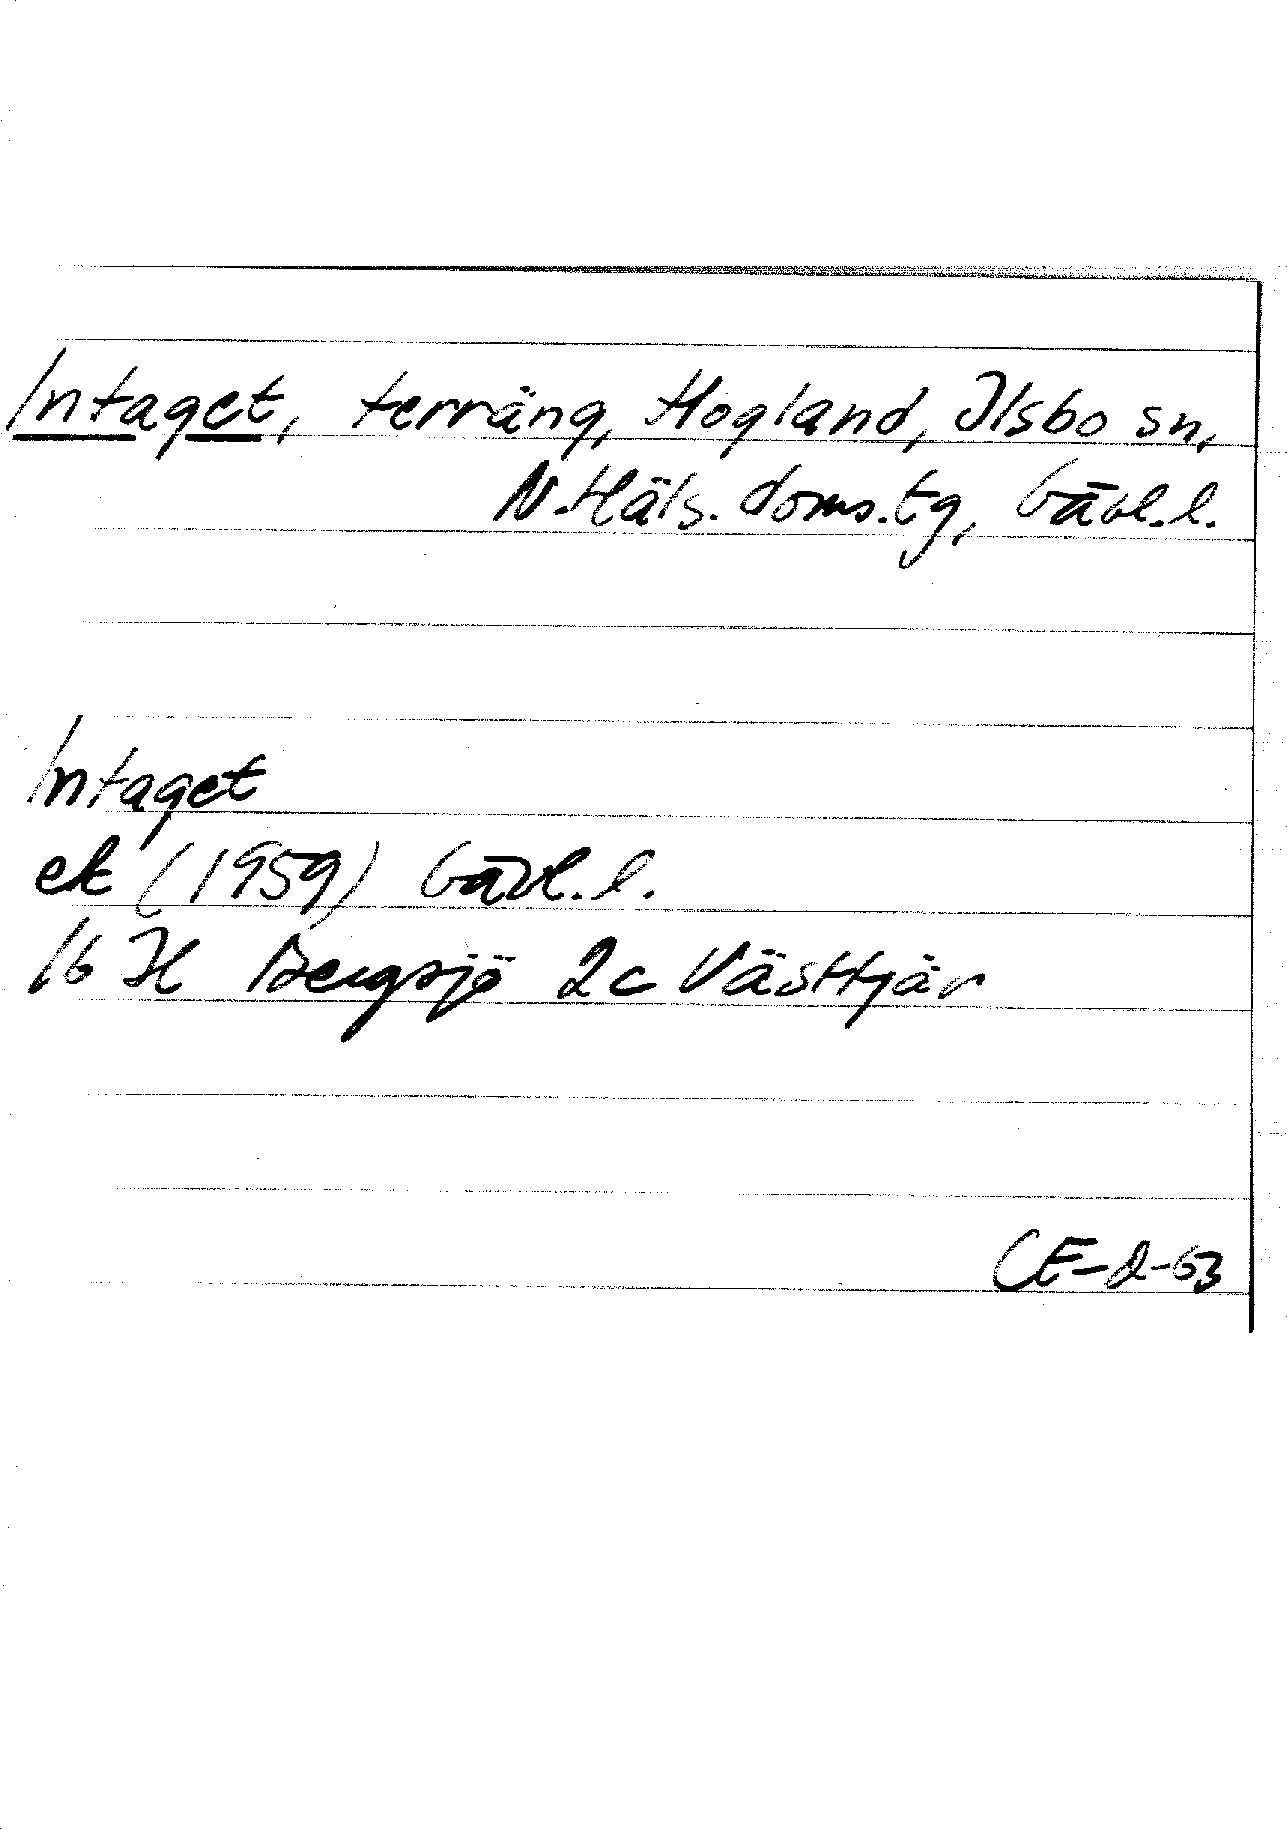 Intaget, terräng, Hogland, Ilsbo sn,
N. Häls. doms. tg, Gävl. l.
Intaget
ek (1959) Gävl. l.
16 H Bergsjö 2c Västtjär
CE-2-63